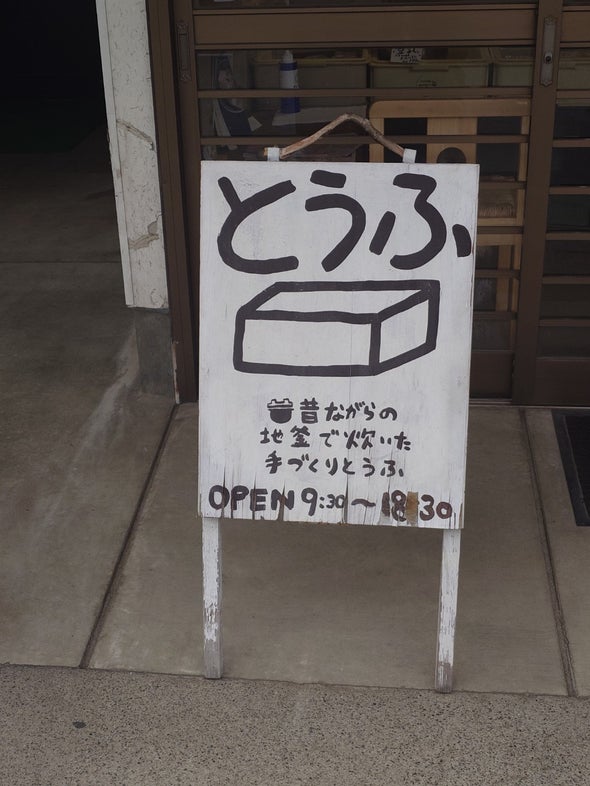 とうふ
昔ながらの
地釜で炊いた
手づくりとうふ
OPEN 9:30～18:30